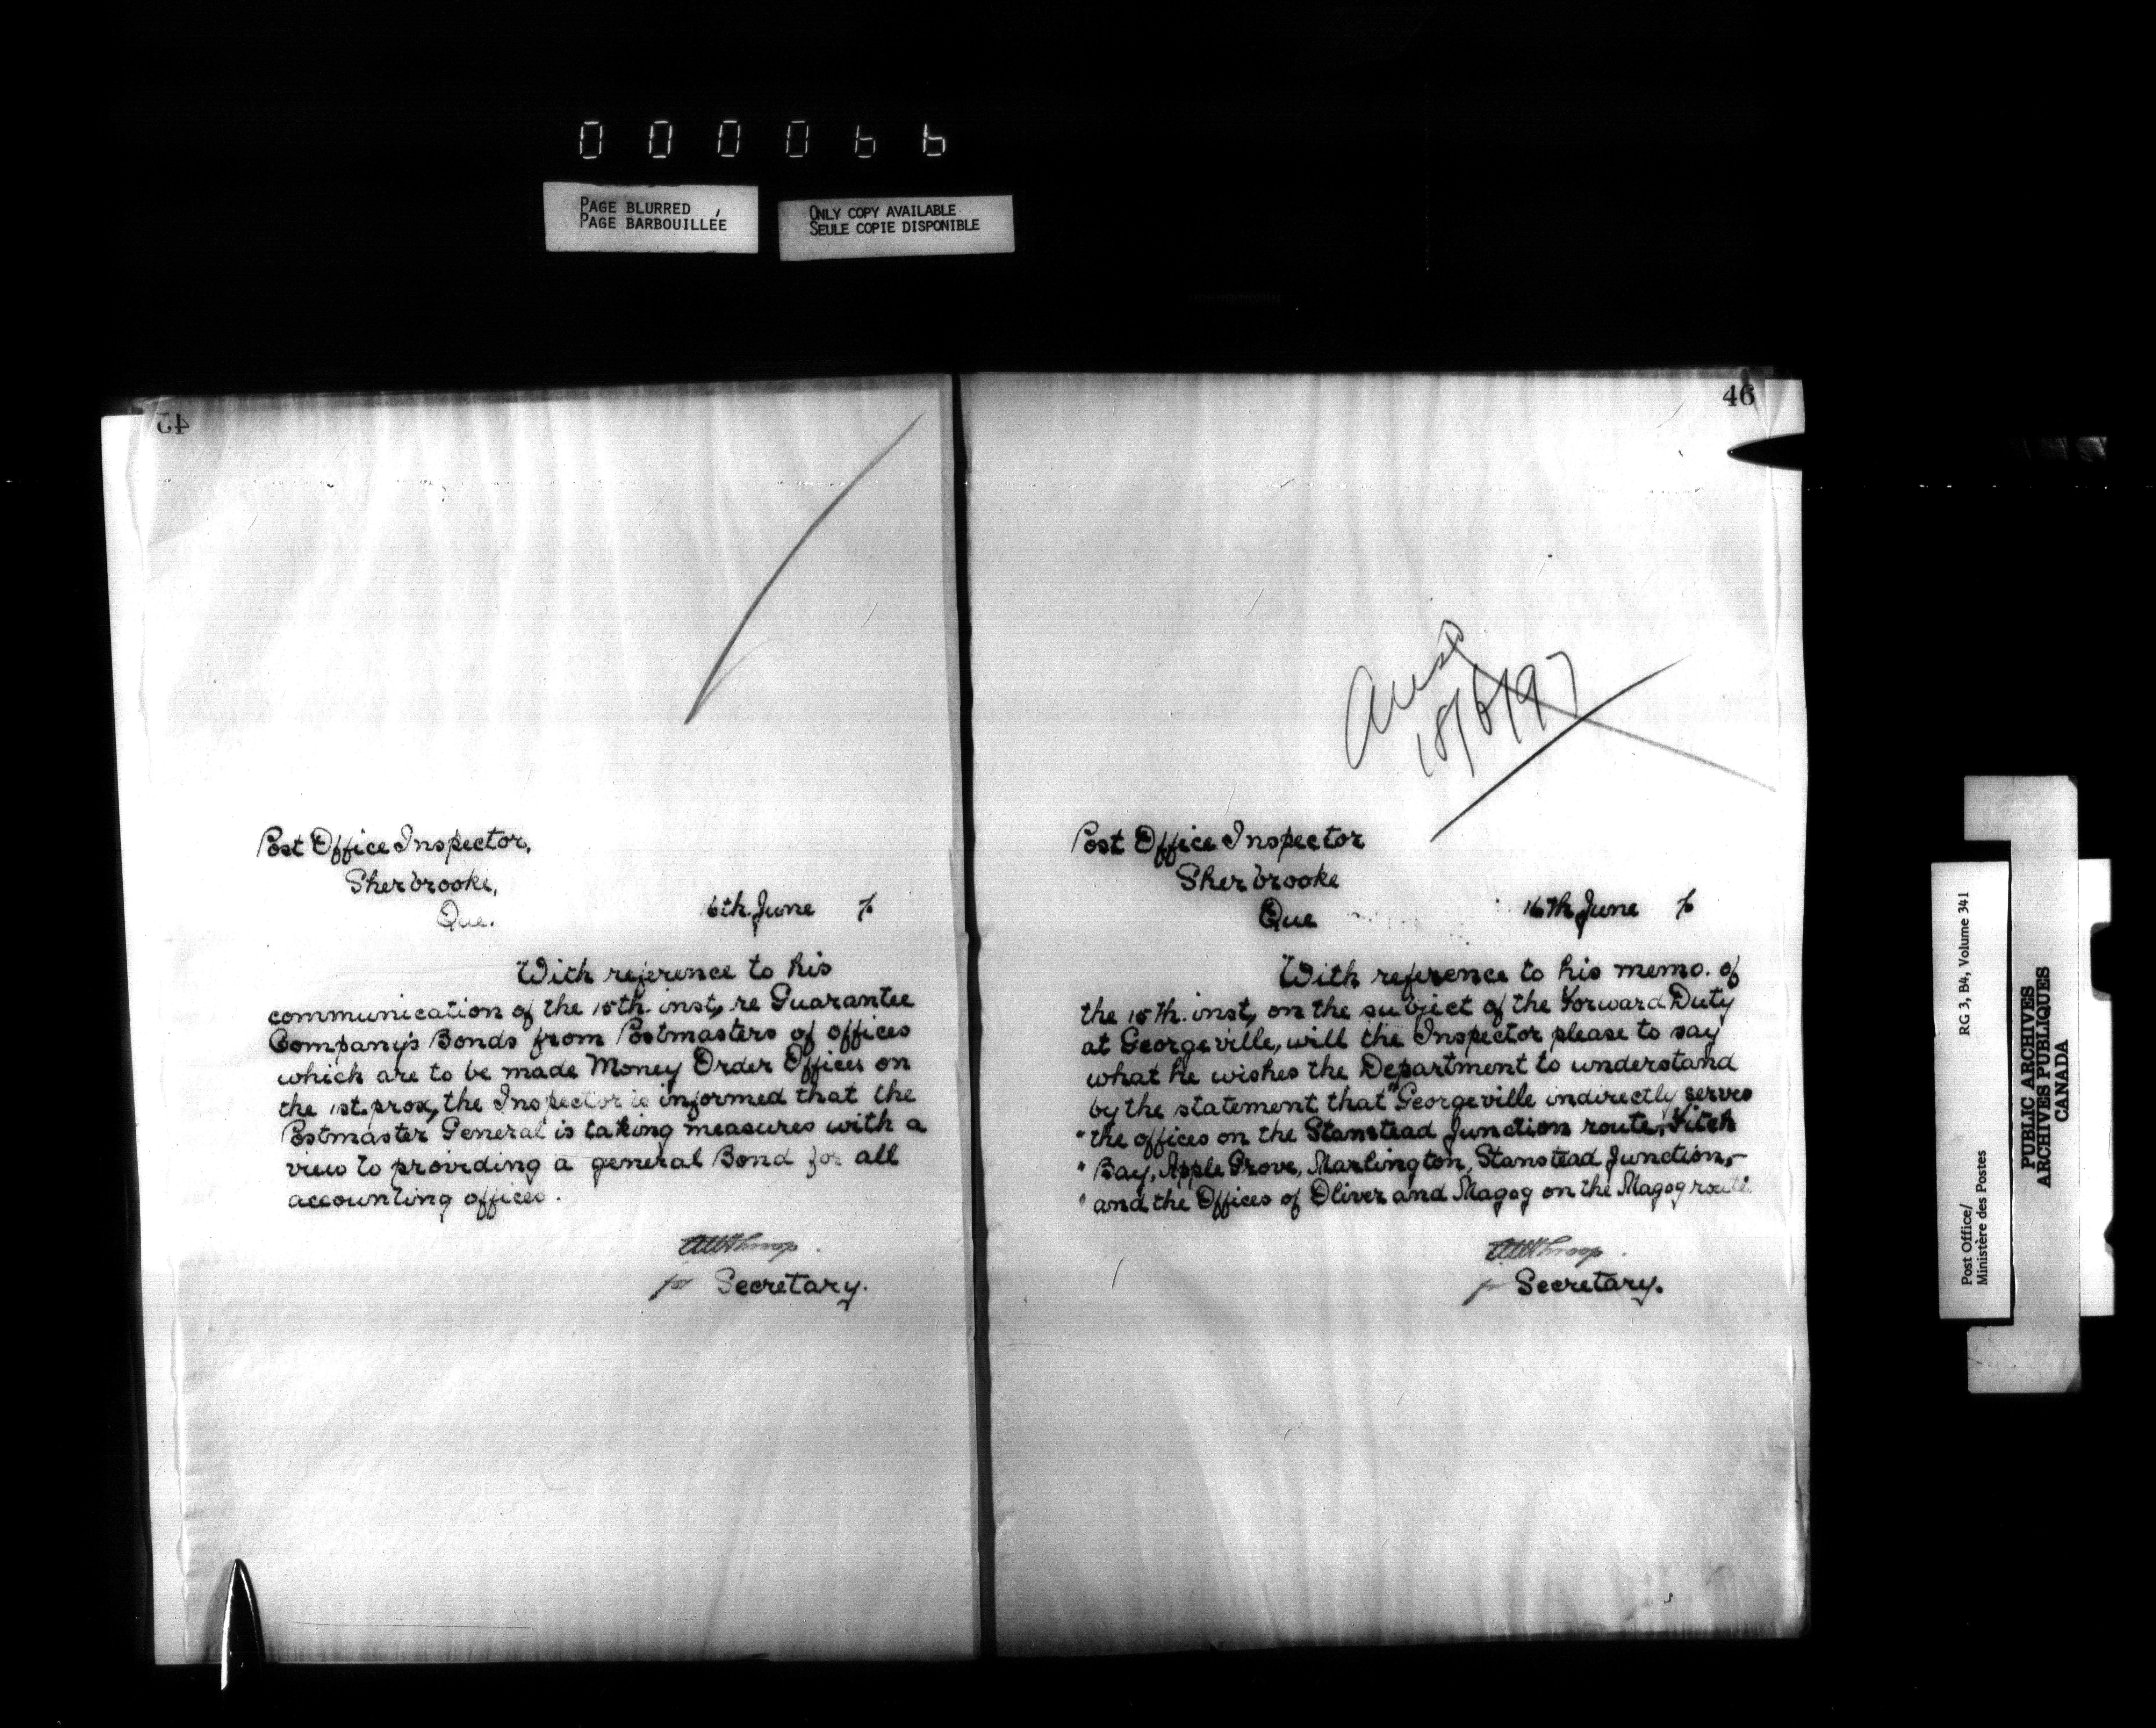 000066
PAGE BLURRED
PAGE BARBOUILLÉE
ONLY COPY AVAILABLE
SEULE COPIE DISPONIBLE
45
Post Office Inspector,
Sherbrooke,
Que.
16th. June 7
With reference to his
communication of the 15th. inst, re Guarantee
Company's Bonds from Postmasters of offices
which are to be made Money Order Offices on
the 1st. prox, the Inspector is informed that the
Postmaster General is taking measures with a
view to providing a general Bond for all
accounting offices.
for Secretary.
46
Ansd
18/6/97
Post Office Inspector
Sherbrooke
Que
16th June 7
With reference to his memo. of
the 15th. inst, on the subject of the Forward Duty
at Georgeville, will the Inspector please to say
what he wishes the Department to understand
by the statement that "Georgeville indirectly serves
" the offices on the Stanstead Junction route, Fitch
" Bay, Apple Grove, Marlington, Stanstead Junction,-
" and the Offices of Oliver and Magog on the Magog route.
for Secretary.
Post Office/
Ministère des Postes
RG 3, B4, Volume 341
PUBLIC ARCHIVES
ARCHIVES PUBLIQUES
CANADA